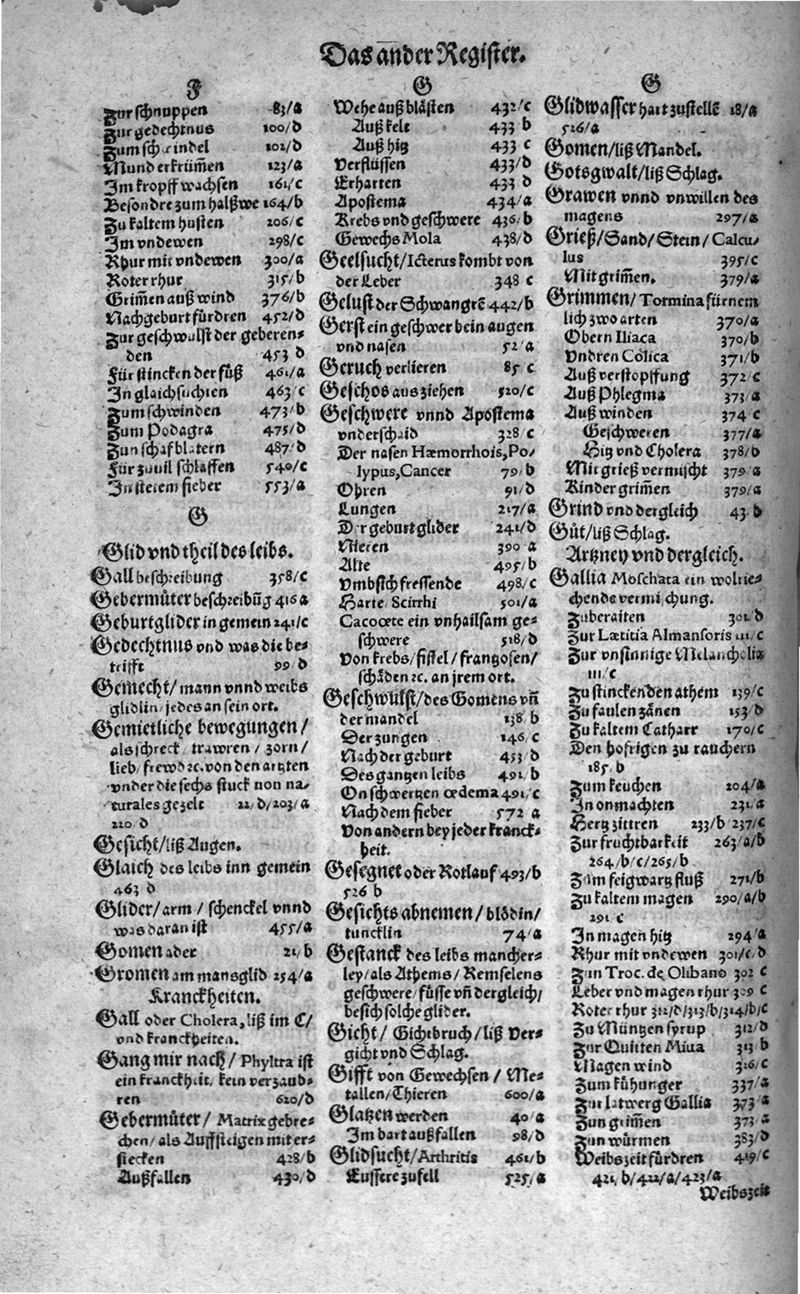 Das ander Register.
F
Zur schnuppen 83/a
Zur gedechtnus 100/d
Zum schwindel 102/d
Mund erkrüm̃en 123/a
Im kropff wachsen 161/c
Besondre zum halßwe 164/b
Zu kaltem husten 206/c
Im vndewen 298/c
Rhur mit vndewen 300/a
Roter rhur 315/b
Grim̃en auß wind 376/b
Nachgeburt fürdren 452/d
Zur geschwulst der geberen-
den 453 d
Für stincken der füß 461/a
In gleichsuchten 463 c
Zum schwinden 473/b
Zum Podagra 475/d
Zun schafblatern 487 d
Für zuuil schlaffen 540/c
In stetem fieber 553/a
G
Glid vnd theil des leibs.
Gall beschreibung 358/c
Gebermůter beschreibũg 416 a
Geburtglider in gemein 241/c
Gedechtnus vnd was die be-
trifft 99 d
Gemecht/ mann vnnd weibs
glidlin/ jedes an sein ort.
Gemietliche bewegungen/
als schreck/ trawren/ zorn/
lieb/ frewd ꝛc. von den artzten
vnder die sechs stuck non na-
turales gezelt 22/d/203/a
220 d
Gesicht/ liß Augen.
Glaich des leibs inn gemein
463 d
Glider/ arm/ schenckel vnnd
was daran ist 455/a
Gomen oder 21/b
Gromen am mansglid 254/a
Kranckheiten.
Gall oder Cholera, liß im C/
vnd kranckheiten.
Gang mir nach/ Phyltra ist
ein kranckheit/ kein verzaub-
ren 620/d
Gebermůter/ Matrix gebre-
chen/ als Auffsteigen mit er-
stecken 428/b
Außfallen 430/d
G
Wehe auß blästen 432/c
Auß kelt 433 b
Auß hitz 433 c
Verflüssen 433/d
Erharten 433 d
Apostema 434/a
Krebs vnd geschwere 436/b
Gewechs Mola 438/d
Geelsucht/ Icterus kombt von
der Leber 348 c
Gelust der Schwangrẽ 442/b
Gerst ein geschwer bein augen
vnd nasen 52 a
Geruch verlieren 85 c
Geschos ausziehen 520/c
Geschwere vnnd Apostema
vnderschaid 328 c
Der nasen Hæmorrhois, Po-
lypus, Cancer 79/b
Ohren 91/d
Lungen 217/a
Der geburt glider 241/d
Nieren 390 a
Alte 495/b
Vmbsich fressende 498/c
Harte Scirrhi 501/a
Cacocete ein vnhailsam ge-
schwere 518/d
Von krebs/ fistel/ frantzosen/
schäden ꝛc. an jrem ort.
Geschwulst/ des Gomens vñ
der mandel 138/b
Der zungen 146/c
Nach der geburt 453/d
Des gantzen leibs 491/b
On schwertzen œdema 491/c
Nach dem fieber 572 a
Von andern bey jeder kranck-
heit.
Gesegnet oder Rotlauf 493/b
526 b
Gesichts abnemen/ blödin/
tuncklin 74/a
Gestanck des leibs mancher-
ley/ als Athems/ Remselens
geschwere/ füsse vñ dergleich/
besich solche glider.
Gicht/ Gichtbruch/ liß Ver-
gicht vnd Schlag.
Gifft von Gewechsen/ Me-
tallen/ Thieren 600/a
Glatzen werden 40/a
Im bart außfallen 98/d
Glidsucht/ Arthritis 461/b
Eussere zufell 525/a
G
Glidwasser hart zustellẽ 18/a
526/a
Gomen/ liß Mandel.
Gotsgwalt/ liß Schlag.
Grawen vnnd vnwillen des
magens 297/a
Grieß/ Sand/ Stein/ Calcu-
lus 395/c
Mit grim̃en. 379/a
Grimmen/ Tormina fürnem
lich zwo arten 370/a
Obern Iliaca 370/b
Vndren Colica 371/b
Auß verstopffung 372 c
Auß Phlegma 373/a
Auß winden 374 c
Geschweren 377/a
Hitz vnd Cholera 378/b
Mit grieß vermischt 379 a
Kinder grim̃en 379/a
Grind vnd dergleich 43 b
Gůt/ liß Schlag.
Artzney vnd dergleich.
Gallia Moschata ein wolrie-
chends vermischung.
Zuberaiten 301/d
Zur Lætitia Almansoris 111/c
Zur vnsinnige Melancholia
111/c
Zu stinckenden athem 139/c
Zu faulen zänen 153/d
Zu kaltem Catharr 170/c
Den hosrigen zu rauchern
185/b
Zum keuchen 204/a
In onmachten 231/a
Hertz zittren 233/b 237/c
Zur fruchtbarkeit 263/a/b
264/b/c/265/b
Zům feigwartz fluß 271/b
Zu kaltem magen 290/a/b
291/c
In magen hitz 294 a
Rhur mit vndewen 301/c/d
Zun Troc. de Olibano 302 c
Leber vnd magen rhur 309 c
Roter rhur 312/d/313/b/314/b/c
Zu Müntzen syrup 312/d
Zur Quitten Miua 313 b
Magen wind 326/c
Zum kůhunger 337/a
Zur latwerg Gallia 373/a
Zun grim̃en 373/a
Zun würmen 383/d
Weibszeit fürdren 419/c
421/b/422/a/423/a
Weibszeit